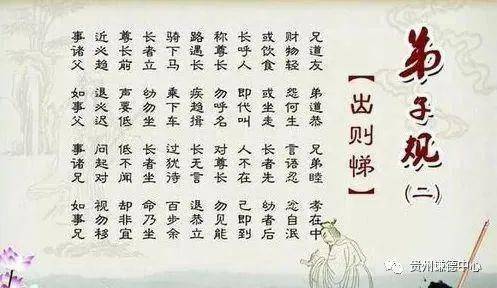 弟子规
(二)
【出则悌】
兄道友 弟道恭 兄弟睦 孝在中
财物轻 怨何生 言语忍 忿自泯
或饮食 或坐走 长者先 幼者后
长呼人 即代叫 人不在 己即到
称尊长 勿呼名 对尊长 勿见能
路遇长 疾趋揖 长无言 退恭立
骑下马 乘下车 过犹待 百步余
长者立 幼勿坐 长者坐 命乃坐
尊长前 声要低 低不闻 却非宜
近必趋 退必迟 问起对 视勿移
事诸父 如事父 事诸兄 如事兄
贵州谦德中心